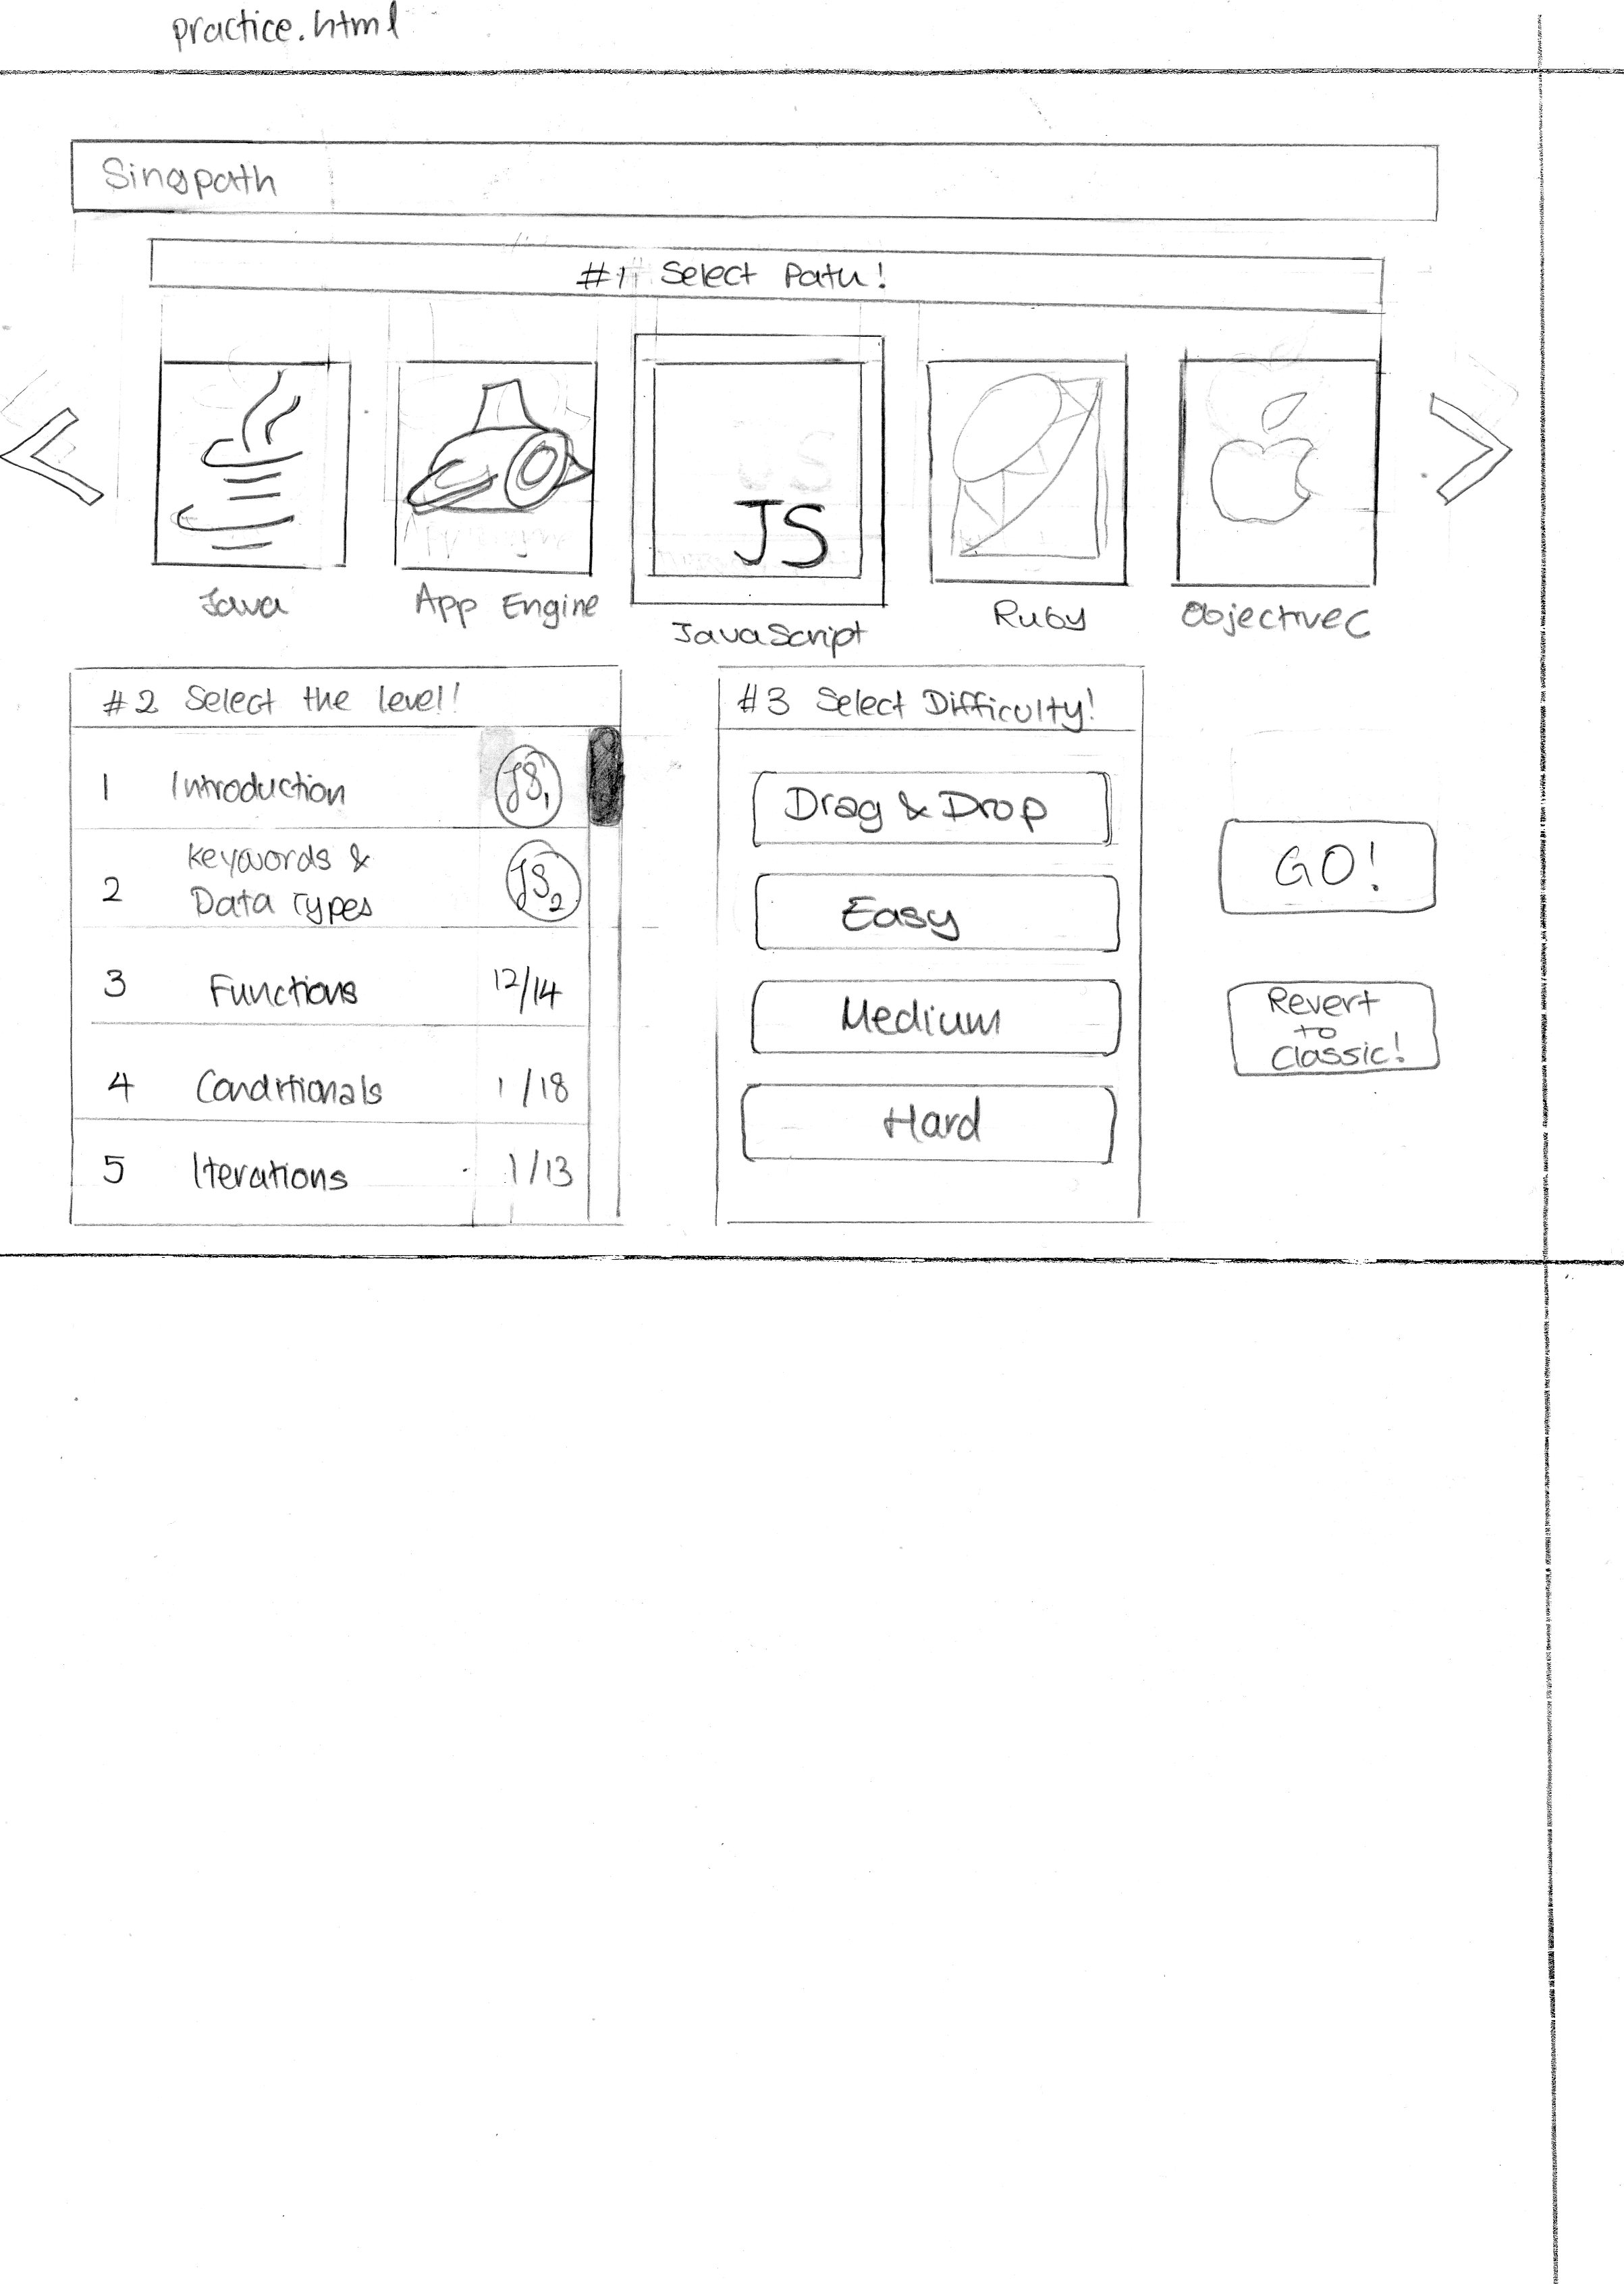 practice.html
Singpath
#1 Select Path!
JS
Java
App Engine
JavaScript
Ruby
Objective C
#2 Select the level!
1 Introduction JS1
2 Keywords &
Data Types JS2
3 Functions 12/14
4 Conditionals 1/18
5 Iterations 1/13
#3 Select Difficulty!
Drag & Drop
Easy
Medium
Hard
GO!
Revert
to
Classic!